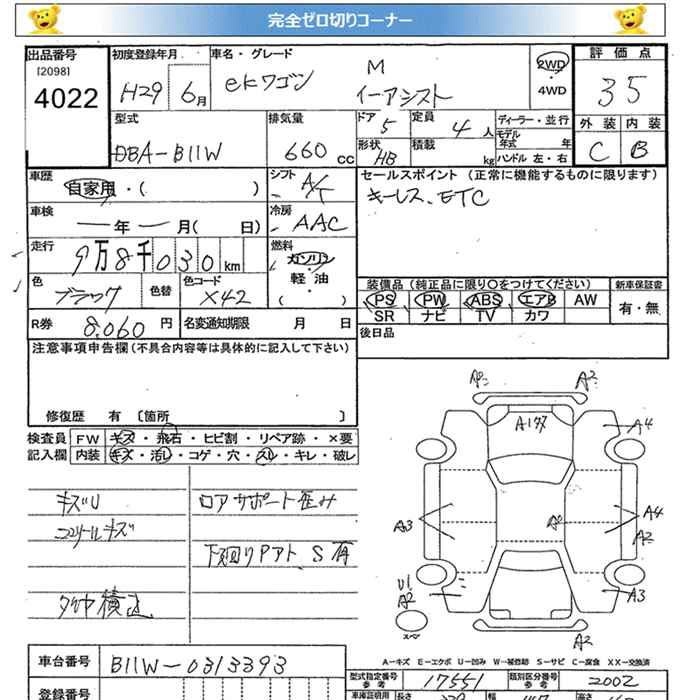 完全ゼロ切りコーナー
出品番号 初度登録年月 車名・グレード 評価点
[2098]
4022 H29 6月 eKワゴン M 2WD 35
イーアシスト 4WD
型式 排気量 ドア 5 定員 4人 ディーラー・並行 外装 内装
モデル年式 年
DBA-B11W 660cc 形状 HB 積載 kg ハンドル 左・右 C B
車歴 シフト セールスポイント (正常に機能するものに限ります)
自家用・( ) A/T キーレス、ETC
車検 冷房
ー年ー月( 日) AAC
走行 燃料
9万8千030km ガソリン
色 色替 色コード 軽油 装備品 (純正品に限り〇をつけてください) 新車保証書
ブラック X42 ( ) PS PW ABS エアB AW 有・無
SR ナビ TV カワ
R券 8,060円 名変通知期限 月 日 後日品
注意事項申告欄(不具合内容等は具体的に記入して下さい)
修復歴 有 [箇所 ]
検査員 FW キズ・飛石・ヒビ割・リペア跡・×要
記入欄 内装 キズ・汚れ・コゲ・穴・スレ・キレ・破レ
キズU コアサポート歪み
コソリールキズ
下廻りPアト S有
タイヤ積込
A2
A4
A3 A4
A2
U1
A2 A3
スペア
A2
A-キズ E-エクボ U-凹み W-補修跡 S-サビ C-腐食 XX-交換済
車台番号 B11W-0313393
型式指定番号 参考 17551 類別区分番号 参考 2002
登録番号 車庫証明用 長さ 幅